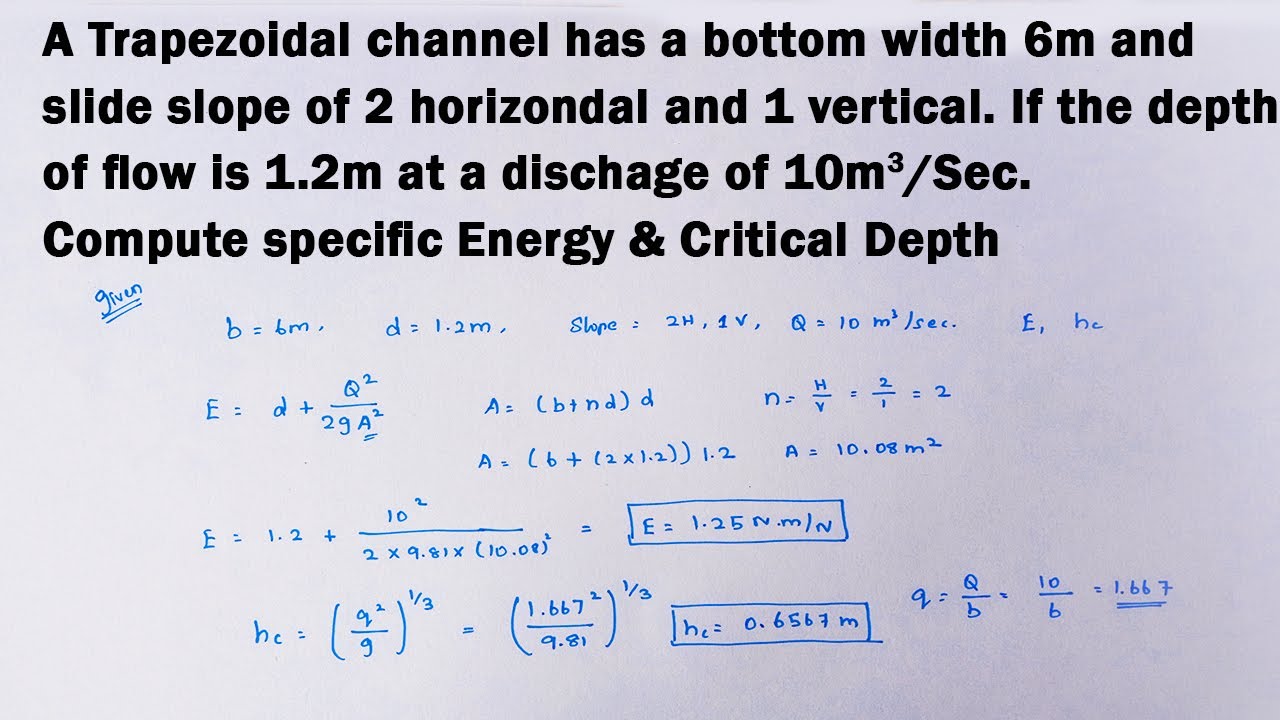 A Trapezoidal channel has a bottom width 6m and
slide slope of 2 horizondal and 1 vertical. If the depth
of flow is 1.2m at a dischage of 10m³/Sec.
Compute specific Energy & Critical Depth
given
b = 6m, d = 1.2m, Slope = 2H, 1V, Q = 10 m³/sec. E, hc
E = d + Q²/2gA² A = (b+nd) d n = H/V = 2/1 = 2
A = (6 + (2×1.2)) 1.2 A = 10.08 m²
E = 1.2 + 10²/2 × 9.81 × (10.08)² = E = 1.25 N.m/N
hc = (q²/g)^1/3 = (1.667²/9.81)^1/3 hc = 0.6567 m q = Q/b = 10/6 = 1.667